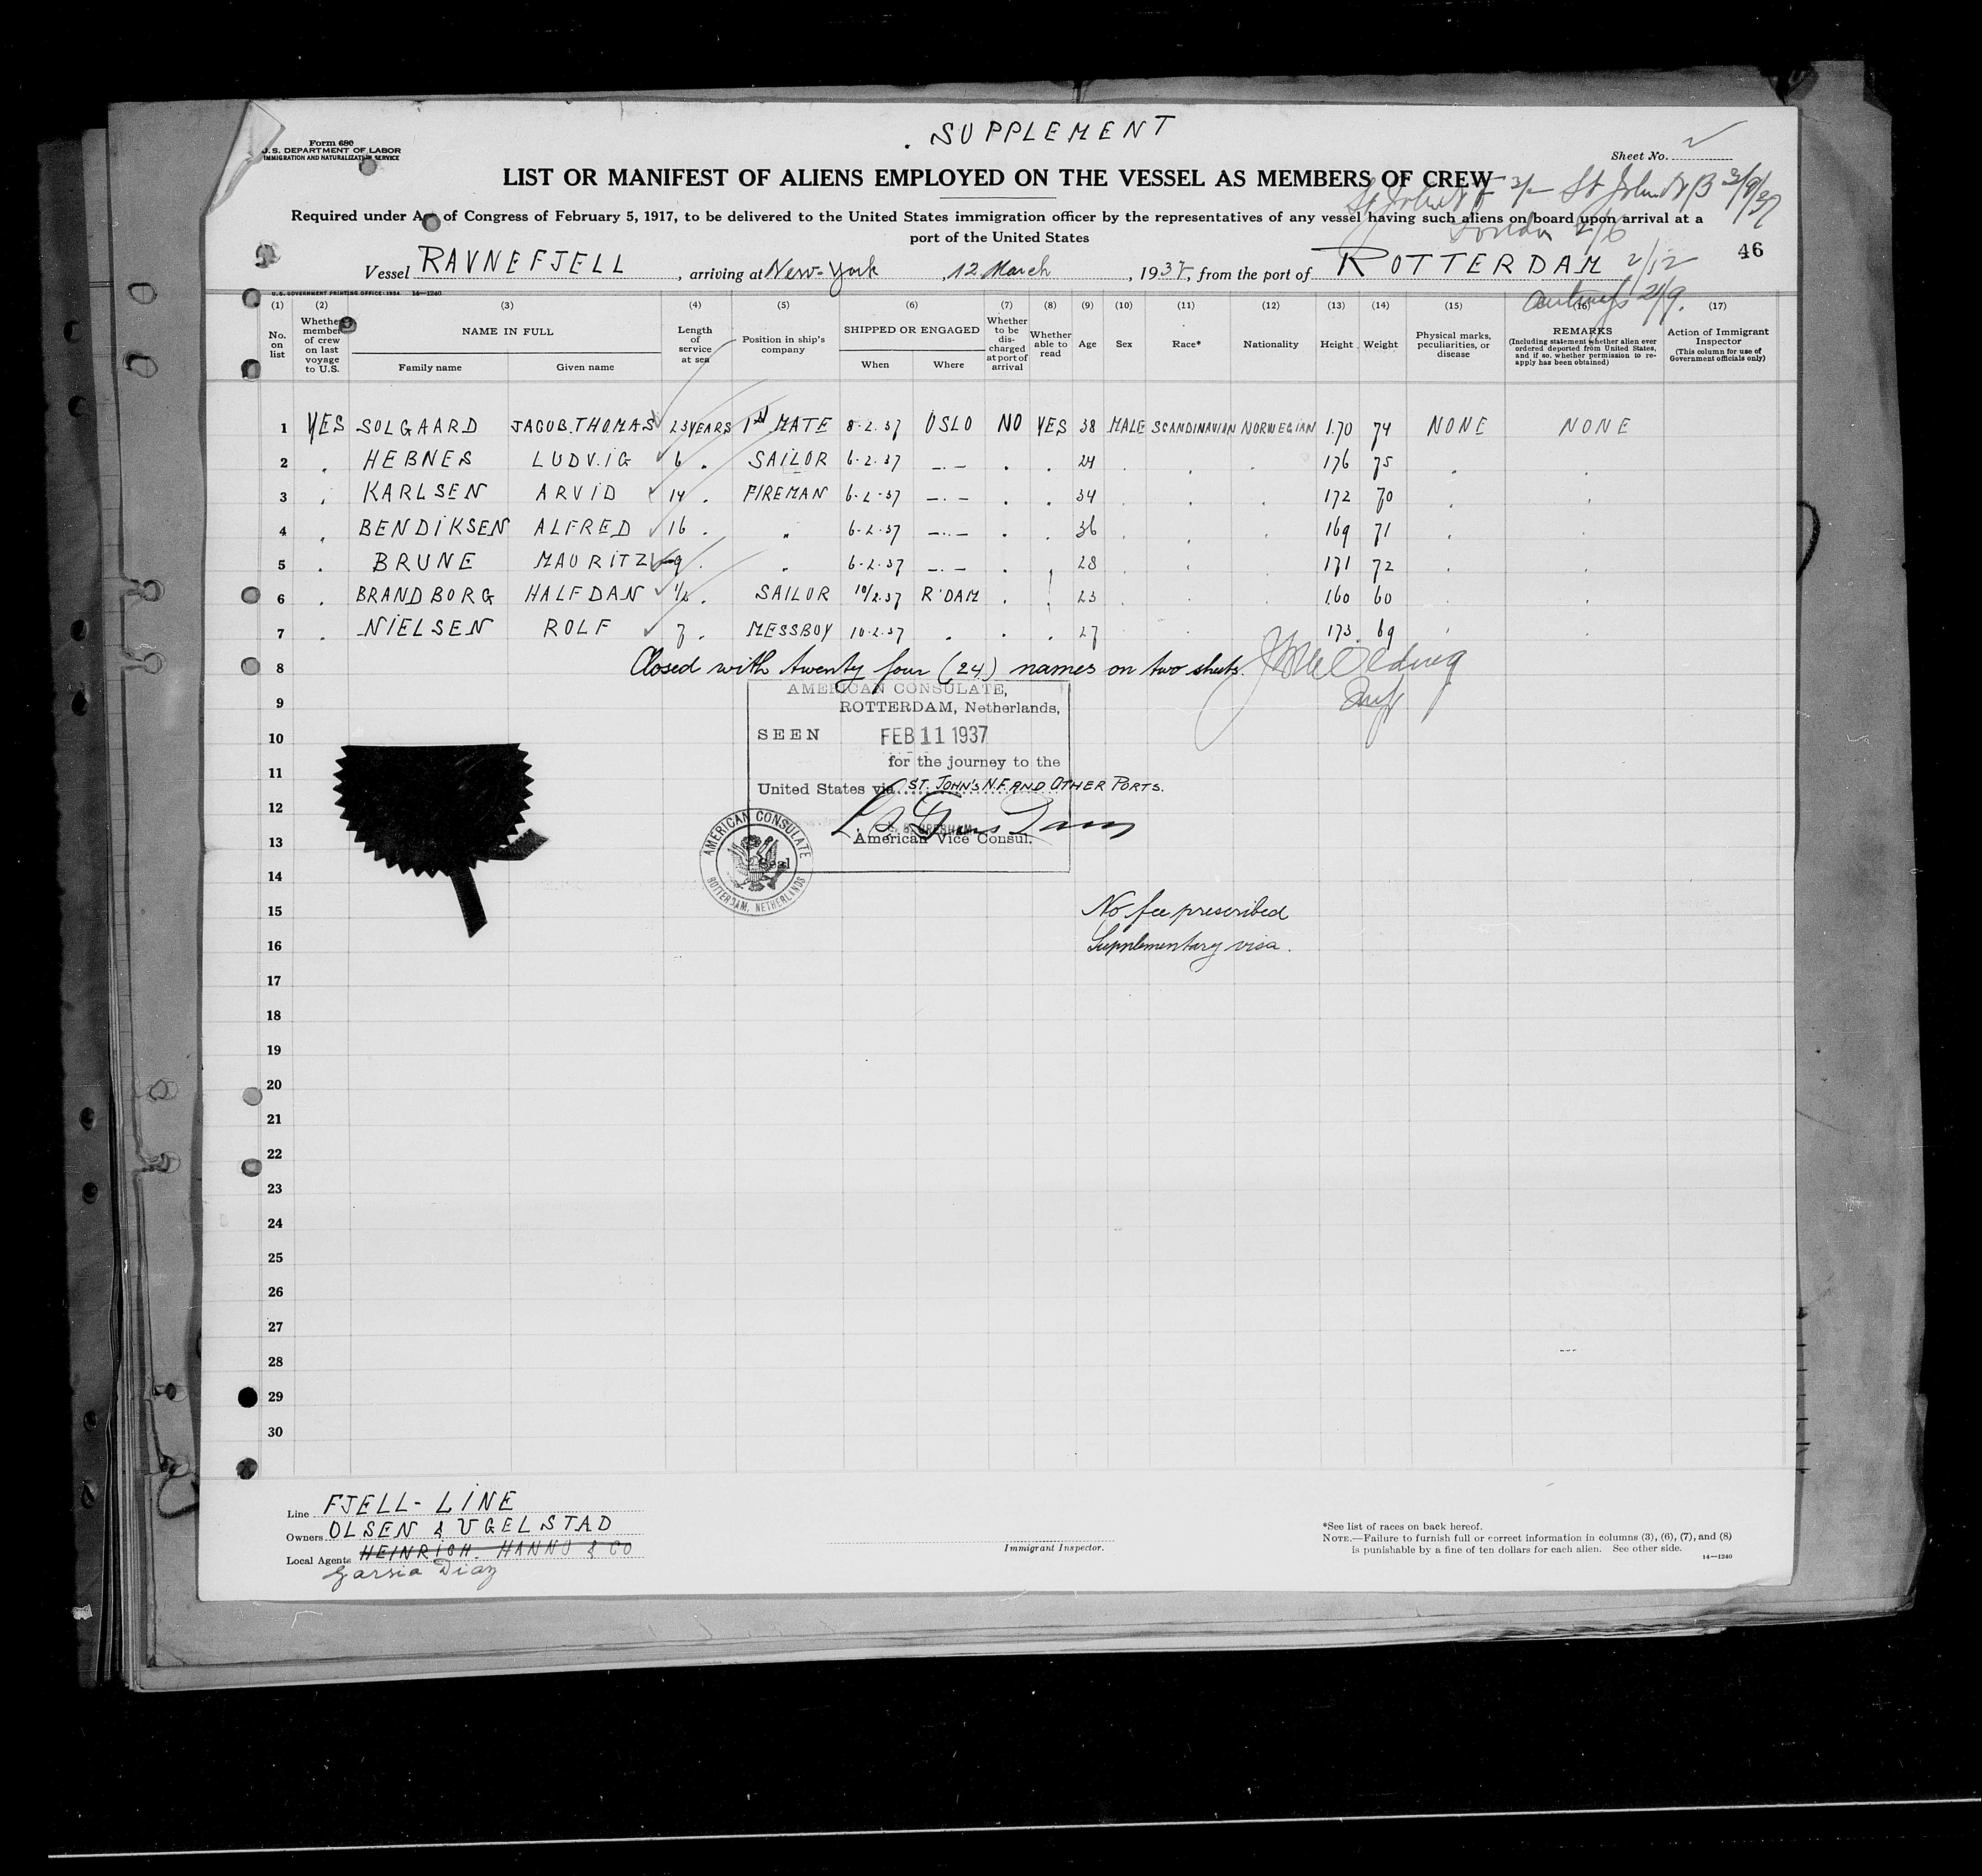 SUPPLEMENT
Form 680
U.S. DEPARTMENT OF LABOR
IMMIGRATION AND NATURALIZATION SERVICE
Sheet No.
LIST OR MANIFEST OF ALIENS EMPLOYED ON THE VESSEL AS MEMBERS OF CREW
St John N F 3/- St John N B 3/9/37
Required under Act of Congress of February 5, 1917, to be delivered to the United States immigration officer by the representatives of any vessel having such aliens on board upon arrival at a
port of the United States
London 2/6
46
Vessel RAVNEFJELL, arriving at New-York, 12 March, 1937, from the port of ROTTERDAM 2/12
U.S. GOVERNMENT PRINTING OFFICE: 1934 14—1240
21/9.
(1) (2) (3) (4) (5) (6) (7) (8) (9) (10) (11) (12) (13) (14) (15) (16) (17)
No. on list
Whether member of crew on last voyage to U.S.
NAME IN FULL
Family name
Given name
Length of service at sea
Position in ship's company
SHIPPED OR ENGAGED
When
Where
Whether to be discharged at port of arrival
Whether able to read
Age
Sex
Race*
Nationality
Height
Weight
Physical marks, peculiarities, or disease
REMARKS
(Including statement whether alien ever ordered deported from United States, and if so, whether permission to reapply has been obtained)
Action of Immigrant Inspector
(This column for use of Government officials only)
1 YES SOLGAARD JACOB.THOMAS 23 YEARS 1st MATE 8-2.37 OSLO NO YES 38 MALE SCANDINAVIAN NORWEGIAN 1.70 74 NONE NONE
2 . HEBNES LUDVIG 6 . SAILOR 6-2.37 -.- . . 24 . . . 176 75 . .
3 . KARLSEN ARVID 14 . FIREMAN 6-2-37 -.- . . 34 . . . 172 70 . .
4 . BENDIKSEN ALFRED 16 . " 6-2-37 -.- . . 36 . . . 169 71 . .
5 . BRUNE MAURITZ 9 . " 6-2.37 -.- . . 28 . . . 171 72 . .
6 . BRANDBORG HALFDAN 1/2 . SAILOR 10/2.37 R'DAM . . 23 . . . 160 60 . .
7 . NIELSEN ROLF 7 . MESSBOY 10-2.37 . . . 27 . . . 173 69 . .
8 Closed with twenty four (24) names on two sheets.
9
10
11
12
13
14
15
16
17
18
19
20
21
22
23
24
25
26
27
28
29
30
AMERICAN CONSULATE,
ROTTERDAM, Netherlands,
SEEN FEB 11 1937
for the journey to the
United States via ST. JOHN'S N.F. AND OTHER PORTS.
American Vice Consul.
Seal
AMERICAN CONSULATE
ROTTERDAM, NETHERLANDS
No fee prescribed
Supplementary visa.
Line FJELL-LINE
Owners OLSEN & UGELSTAD
Local Agents HEINRICH. HANNO & CO
Garsia Diaz
Immigrant Inspector.
*See list of races on back hereof.
NOTE.—Failure to furnish full or correct information in columns (3), (6), (7), and (8)
is punishable by a fine of ten dollars for each alien. See other side.
14—1240